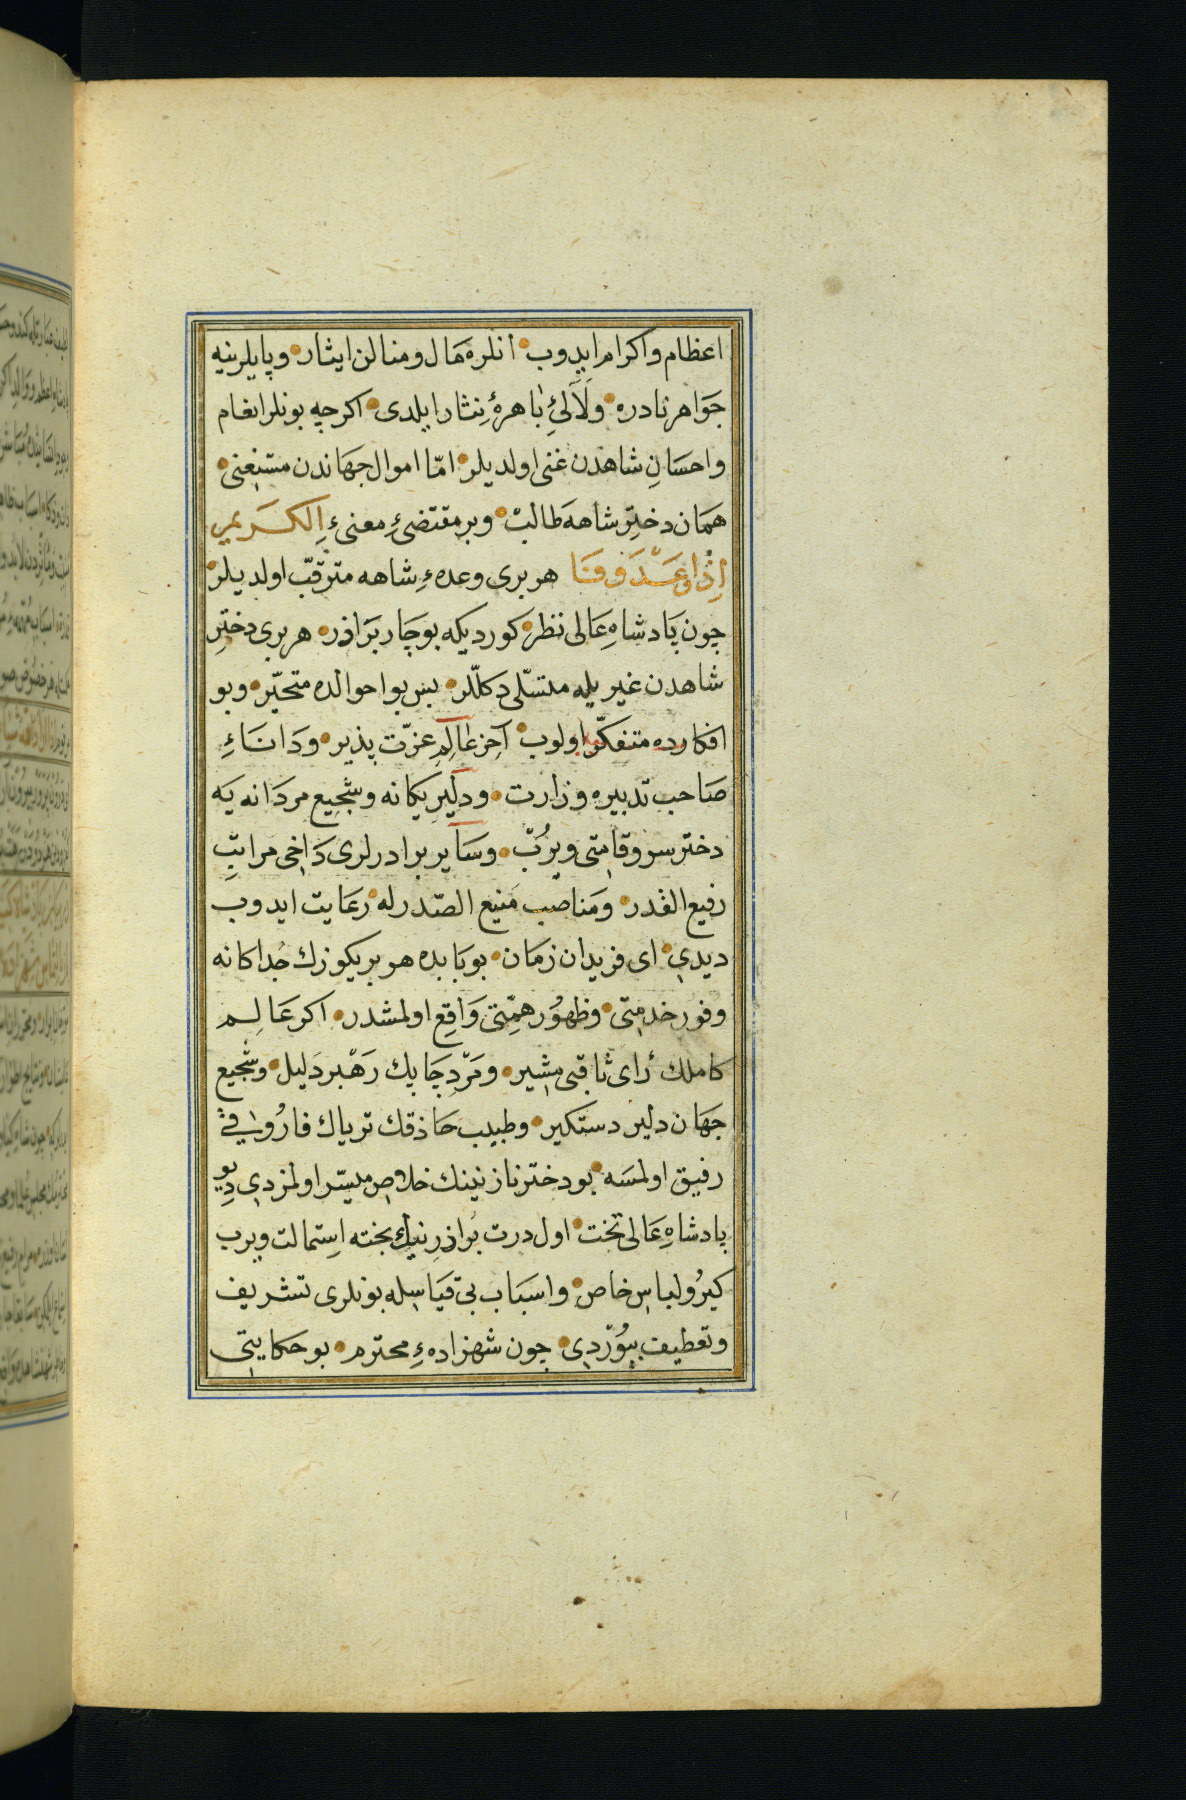 اعظام واكرام ايدوب انلره مال ومنالن ايثار وپايلرينه
جَوَاهر نادره ولَآلئِ باهرهٔ نِثار ايلدی اكرچه بونلر انعام
واحسَانِ شاهدن غنی اولديلر امّا اموال جهَاندن مستغنی
همَان دخترِ شاهه طالب وبر مقتضیِٔ معنیٔ اِلكَريم
اِذَا وَعَدَ وَفَا هر بری وعدهٔ شاهه مترقّب اولديلر
چون پَادشاهِ عَالی نظر كورديكه بو چَار برَاذر هر بری دخترِ
شاهدن غيريله متسلّی دكللر بس بو احوالده متحيّر وبو
افكارده متفكّر اولوب آخر عَالِمِ عزّت پذير ودَانَاءِ
صَاحب تدبيره وزارت ودلَيرِ يكانه وشجيع مردَانه يَه
دختر سرو قامتی ويرُب وسَاير برادرلری دَاخی مراتبِ
رفيع القدر ومَناصبِ مَنيع الصّدرله رعَايت ايدوب
ديدی ای فريدان زمَان بو بَابده هر بريكوزك جُداكانه
وفور خدمتی وظهُور همّتی وَاقع اولمشدر اكر عَالِم
كاملك رَای ثاقبی مشير ومَرْدِ چَابك رَهْبر دَليل وشجيع
جهَان دلير دستكير وطبيب حَاذقك ترياك فارُوقی
رفيق اولمسَه بو دختر نازنينك خلاص ميسّر اولمزدی ديو
پادشاهِ عَالی تخت اول درت برَاذرِ نيك بخته اِستمالت ويرب
كيرُو لباسِ خاص واسبَاب بی قيَاسله بونلری تشريف
وتعطيف بيُوردی چون شهزادهٔ محترم بو حكايتی